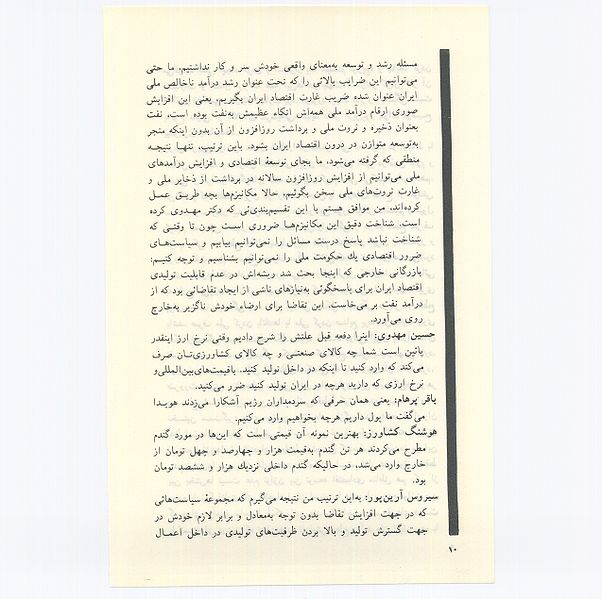 مسئله رشد و توسعه به‌معنای واقعی خودش سر و کار نداشتیم. ما حتی
می‌توانیم این ضرایب بالائی را که تحت عنوان رشد درآمد ناخالص ملی
ایران عنوان شده ضریب غارت اقتصاد ایران بگیریم. یعنی این افزایش
صوری ارقام درآمد ملی همه‌اش اتکاء عظیمش به‌نفت بوده است، نفت
بعنوان ذخیره و ثروت ملی و برداشت روزافزون از آن بدون اینکه منجر
به‌توسعه متوازن در درون اقتصاد ایران بشود. باین ترتیب، تنها نتیجه
منطقی که گرفته می‌شود، ما بجای توسعهٔ اقتصادی و افزایش درآمدهای
ملی می‌توانیم از افزایش روزافزون سالانه در برداشت از ذخایر ملی و
غارت ثروت‌های ملی سخن بگوئیم. حالا مکانیزم‌ها بچه طریق عمل
کرده‌اند. من موافق هستم با این تقسیم‌بندی‌ئی که دکتر مهدوی کرده
است. شناخت دقیق این مکانیزم‌ها ضروری است چون تا وقتی که
شناخت نباشد پاسخ درست مسائل را نمی‌توانیم بیابیم و سیاست‌های
ضرور اقتصادی یك حکومت ملی را نمی‌توانیم بشناسیم و توجه کنیم:
بازرگانی خارجی که اینجا بحث شد ریشه‌اش در عدم قابلیت تولیدی
اقتصاد ایران برای پاسخگوئی به‌نیازهای ناشی از ایجاد تقاضائی بود که از
درآمد نفت بر می‌خاست. این تقاضا برای ارضاء خودش ناگزیر به‌خارج
روی می‌آورد.
حسین مهدوی: اینرا دفعه قبل علتش را شرح دادیم وقتی نرخ ارز اینقدر
پائین است شما چه کالای صنعتی و چه کالای کشاورزی‌تان صرف
می‌کند که وارد کنید تا اینکه در داخل تولید کنید. باقیمت‌های‌بین‌المللی‌و
نرخ ارزی که دارید هرچه در ایران تولید کنید ضرر می‌کنید.
باقر پرهام: یعنی همان حرفی که سردمداران رژیم آشکارا می‌زدند هویدا
می‌گفت ما پول داریم هرچه بخواهیم وارد می‌کنیم.
هوشنگ کشاورز: بهترین نمونه آن قیمتی است که این‌ها در مورد گندم
مطرح می‌کردند هر تن گندم به‌قیمت هزار و چهارصد و چهل تومان از
خارج وارد می‌شد، در حالیکه گندم داخلی نزدیك هزار و ششصد تومان
بود.
سیروس آرین‌پور: به‌این ترتیب من نتیجه می‌گیرم که مجموعهٔ سیاست‌هائی
که در جهت افزایش تقاضا بدون توجه به‌معادل و برابر لازم خودش در
جهت گسترش تولید و بالا بردن ظرفیت‌های تولیدی در داخل اعمال
۱۰